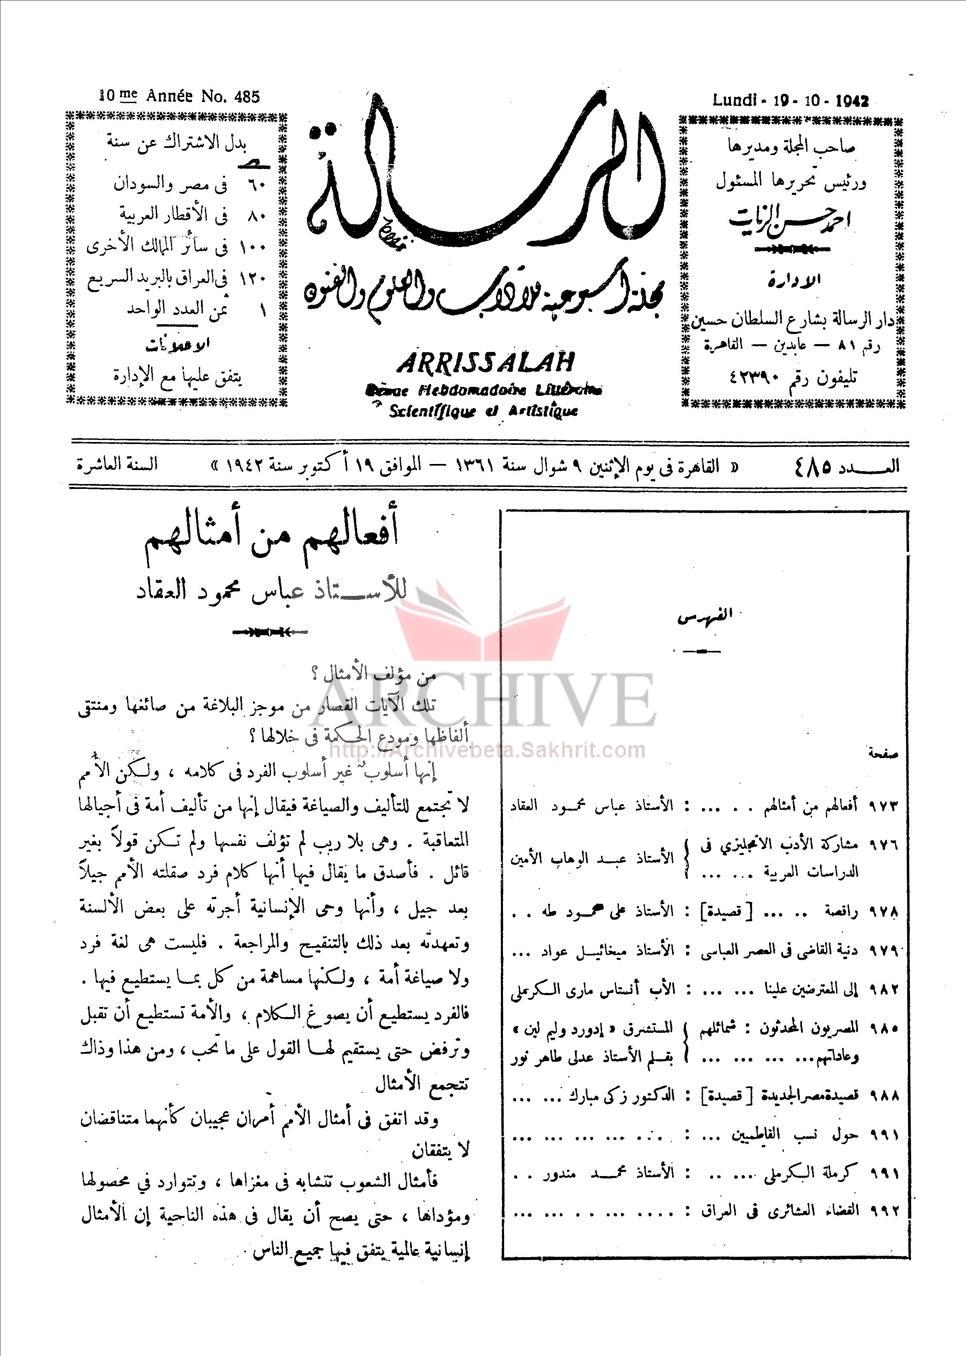 10me Année No. 485
Lundi - 19 - 10 - 1942
صاحب المجلة ومديرها
ورئيس تحريرها المسئول
احمد حسن الزيات
الإدارة
دار الرسالة بشارع السلطان حسين
رقم ٨١ — عابدين — القاهرة
تليفون رقم ٤٢٣٩٠
الرسالة
مجلة أسبوعية للآداب والعلوم والفنون
ARRISSALAH
Revue Hebdomadaire Littéraire
Scientifique et Artistique
بدل الاشتراك عن سنة
٦٠ فى مصر والسودان
٨٠ فى الأقطار العربية
١٠٠ فى سائر الممالك الأخرى
١٢٠ فى العراق بالبريد السريع
١ ثمن العدد الواحد
الاعلانات
يتفق عليها مع الإدارة
العـــدد ٤٨٥ « القاهرة فى يوم الإثنين ٩ شوال سنة ١٣٦١ — الموافق ١٩ أكتوبر سنة ١٩٤٢ » السنة العاشرة
الفهرس
صفحة
٩٧٣ أفعالهم من أمثالهم . . ... : الأستاذ عباس محمود العقاد
٩٧٦ مشاركة الأدب الانجليزي فى الدراسات العربية ... ... } الأستاذ عبد الوهاب الأمين
٩٧٨ راقصة .. ... [ قصيدة ] : الأستاذ على محمود طه . .
٩٧٩ دنية القاضى فى العصر العباسى : الأستاذ ميخائيل عواد ...
٩٨٢ إلى المعترضين علينا ... ... : الأب أنستاس مارى الكرملى
٩٨٥ المصريون المحدثون : شمائلهم { المستشرق « إدورد وليم لين »
وعاداتهم... ... ... ... } بقلم الأستاذ عدلى طاهر نور
٩٨٨ قصيدة مصر الجديدة [ قصيدة ] : الدكتور زكى مبارك ... ...
٩٩١ حول نسب الفاطميين ... : . . ... ... ... ...
٩٩١ كرملة الكرملى ... .. : الأستاذ محمد مندور . .
٩٩٢ القضاء العشائرى فى العراق : .... ... . . ... ...
أفعالهم من أمثالهم
للأســـتاذ عباس محمود العقاد
من مؤلف الأمثال ؟
تلك الآيات القصار من موجز البلاغة من صائغها ومنتقى
ألفاظها ومودع الحكمة فى خلالها ؟
إنها أسلوب غير أسلوب الفرد فى كلامه ، ولكن الأمم
لا تجتمع للتأليف والصياغة فيقال إنها من تأليف أمة فى أجيالها
المتعاقبة . وهى بلا ريب لم تؤلف نفسها ولم تكن قولاً بغير
قائل . فأصدق ما يقال فيها أنها كلام فرد صقلته الأمم جيلاً
بعد جيل ، وأنها وحى الإنسانية أجرته على بعض الألسنة
وتعهدته بعد ذلك بالتنقيح والمراجعة . فليست هى لغة فرد
ولا صياغة أمة ، ولكنها مساهمة من كل بما يستطيع فيها .
فالفرد يستطيع أن يصوغ الكلام ، والأمة تستطيع أن تقبل
وترفض حتى يستقيم لها القول على ما تحب ، ومن هذا وذاك
تتجمع الأمثال
وقد اتفق فى أمثال الأمم أمران عجيبان كأنهما متناقضان
لا يتفقان
فأمثال الشعوب تتشابه فى مغزاها ، وتتوارد في محصولها
ومؤداها ، حتى يصح أن يقال فى هذه الناحية إن الأمثال
إنسانية عالمية يتفق فيها جميع الناس
ARCHIVE
http://Archivebeta.Sakhrit.com